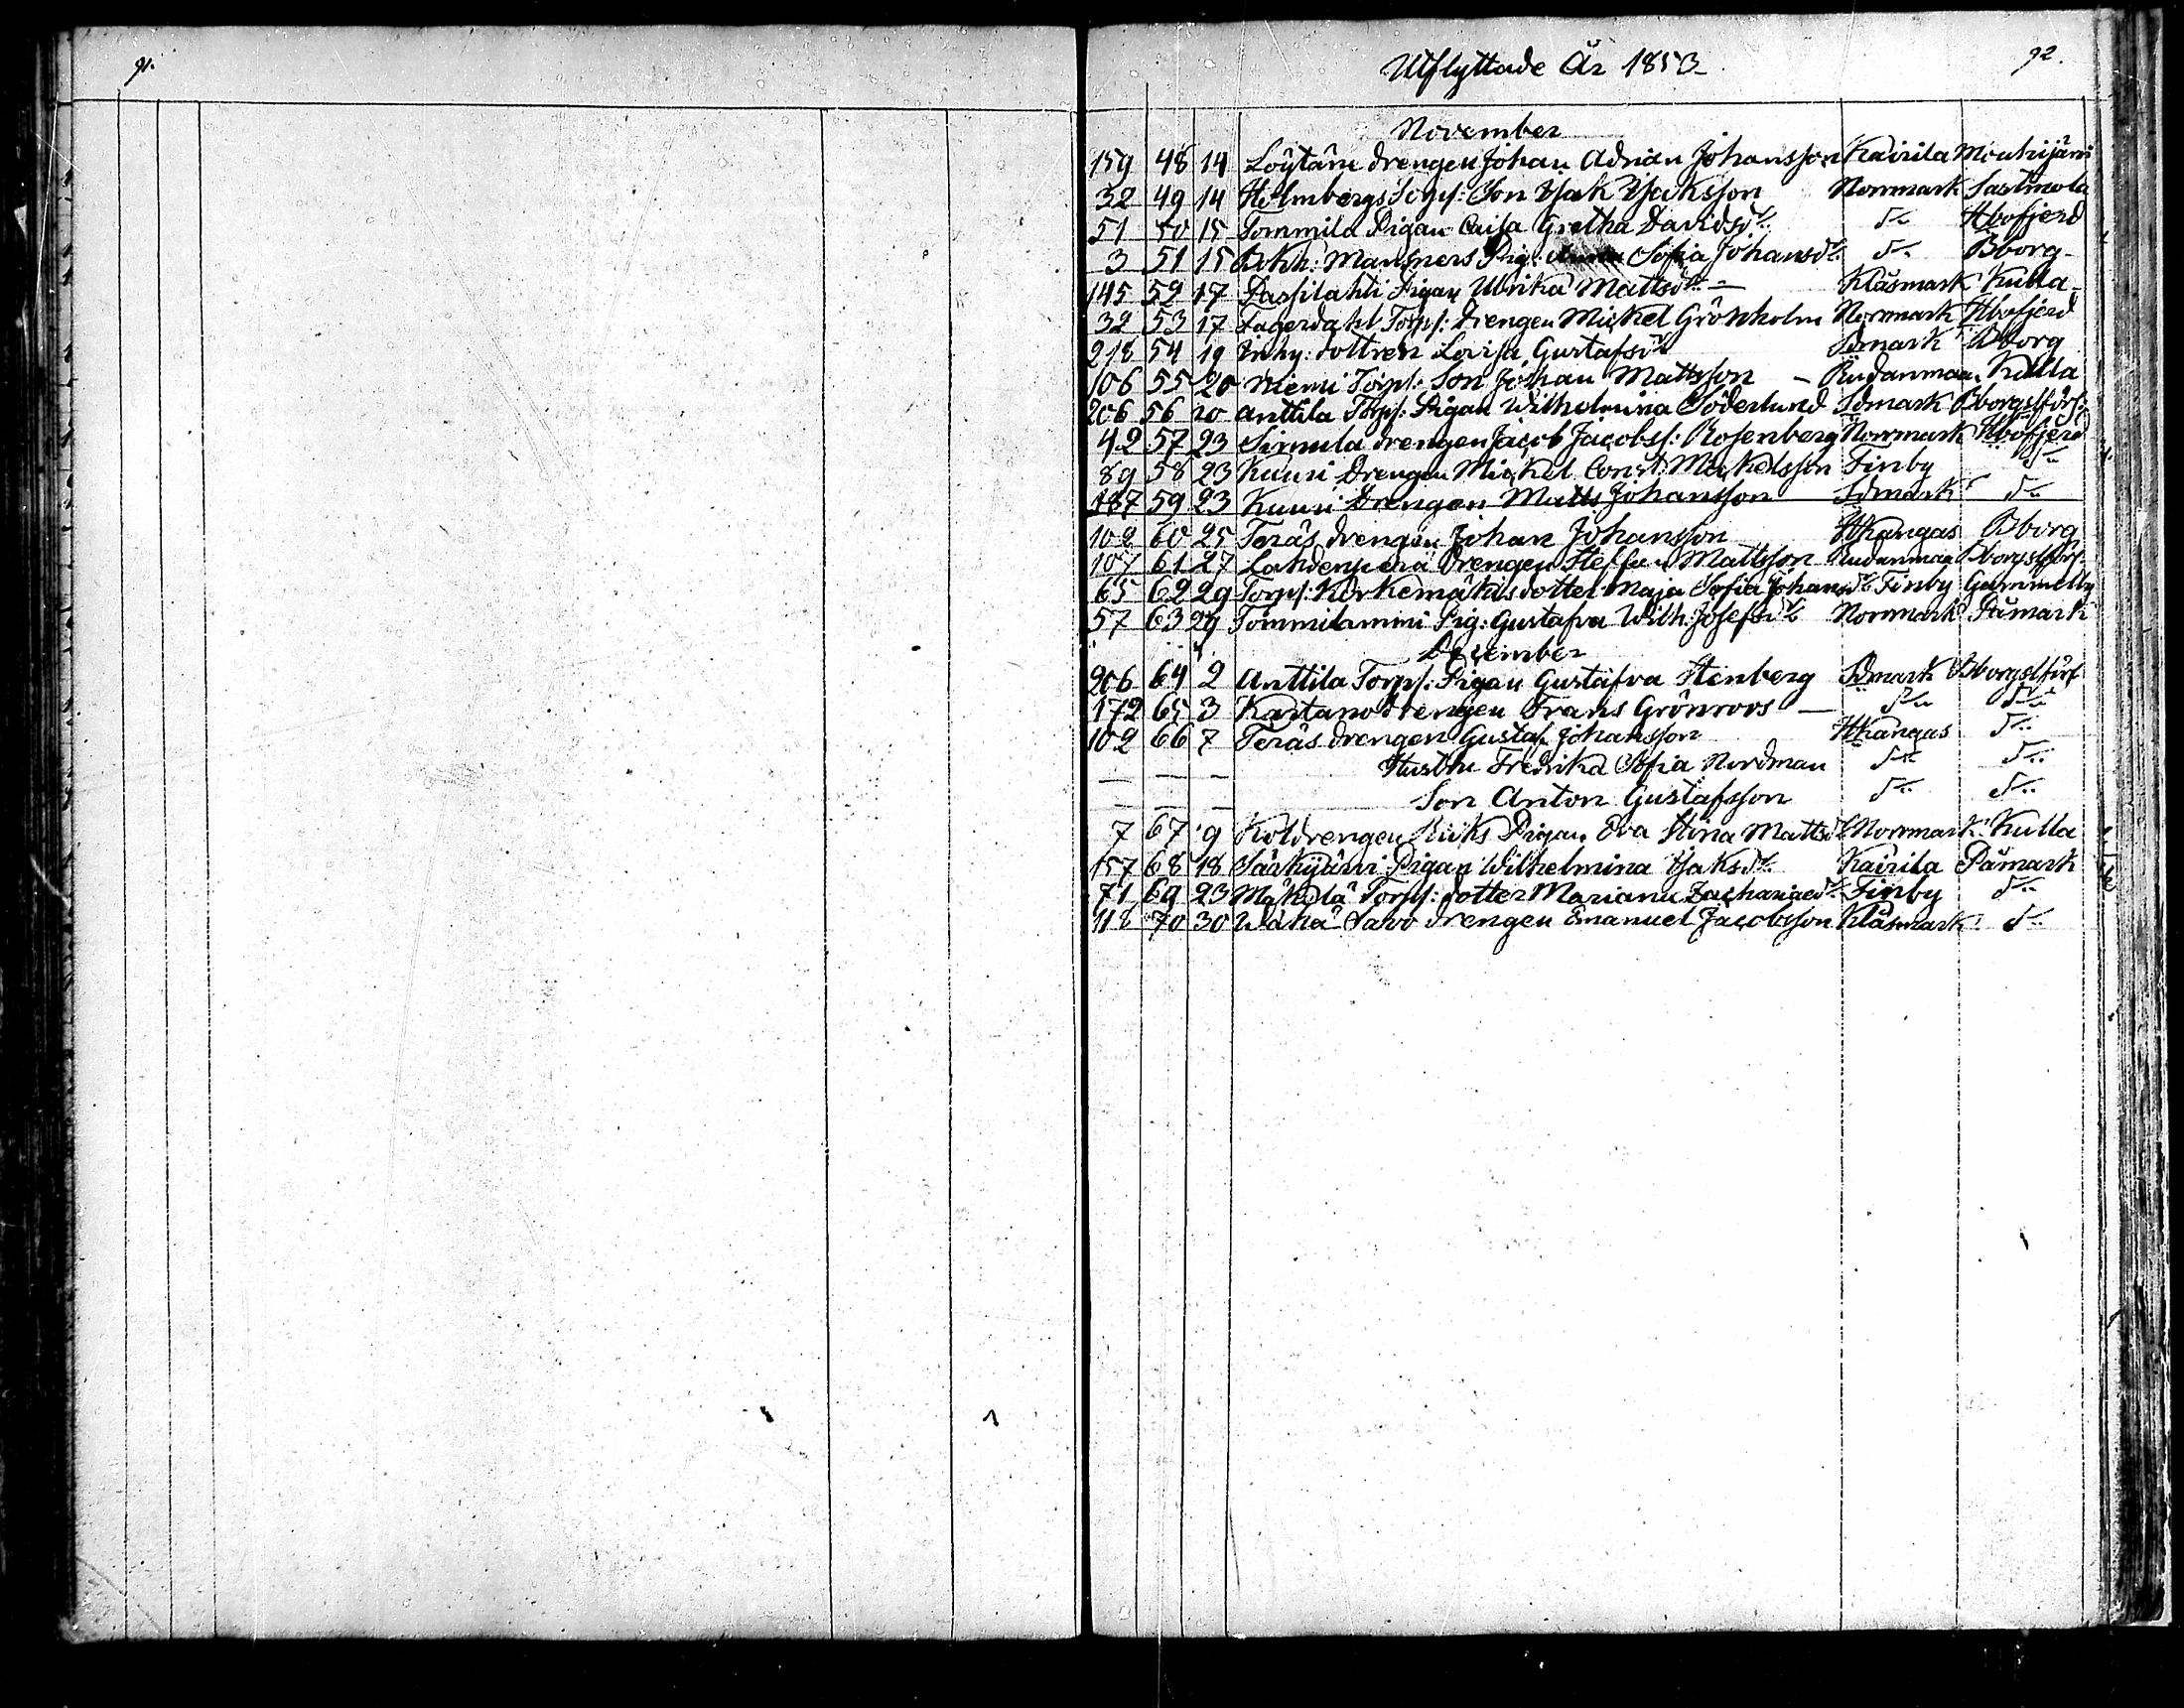 91.
Utflyttade År 1853
92.
November
159 48 14 Löytäne drengen Johan Adrian Johansson Kairila Mouhijärvi
32 49 14 Holmbergs Torps: Son Isak Isaksson Norrmark Sastmola
51 50 15 Tommila Pigan Caisa Gretha Davidsdr Do Hbofjerd
3 51 15 Mansners Pig: Sofia Johansdr Do Bborg
145 52 17 Passilahti Pigan Ulrika Mattsdr Klåsmark Kulla
32 53 17 Fagerdahl Torps: drengen Mickel Grönholm Norrmark Hbofjerd
218 54 19 Inhy: dottren Lovisa Gustafsdr Sdmark Bborg
106 55 20 Niemi Torps: Son Johan Mattsson Rudanmaa Kulla
206 56 20 Anttila Torps: Pigan Wilhelmina Söderlund Sdmark Bborgslförs:
42 57 23 Sirmula drengen Jacob Jacobss: Rosenberg Norrmark Hbofjerd
89 58 23 Kuuri Drengen Mickel Const: Mickelsson Finby Do
187 59 23 Kuuri Drengen Matts Johansson Sdmark Do
102 60 25 Teräs drengen Johan Johansson Htkangas Bborg
107 61 27 Lahdenperä Drengen Steffan Mattsson Rudanmaa Bborgslförs
65 62 29 Torps: Korkemäkis dotter Maja Sofia Johansdr Finby Gammelby
57 63 29 Tommilamini Pig: Gustafva Wilh: Josefsdr Norrmark Påmark
December
206 64 2 Anttila Torps: Pigan Gustafva Stenberg Sdmark Bborgslförs
172 65 3 Kartano drengen Frans Grönroos Do Do
102 66 7 Teräs drengen Gustaf Johansson Htkangas Do
— — — Hustru Fredrika Sofia Nordman Do Do
— — — Son Anton Gustafsson Do Do
7 67 9 Koldrengen Pigan Eva Stina Mattsdr Norrmark Kulla
157 68 18 Särkijärvi Pigan Wilhelmina Isaksdr Kairila Påmark
71 69 23 Mäkelä Torps: dotter Mariana Zachariaedr Finby Do
118 70 30 Wähä Savo drengen Emanuel Jacobsson Klåsmark Do